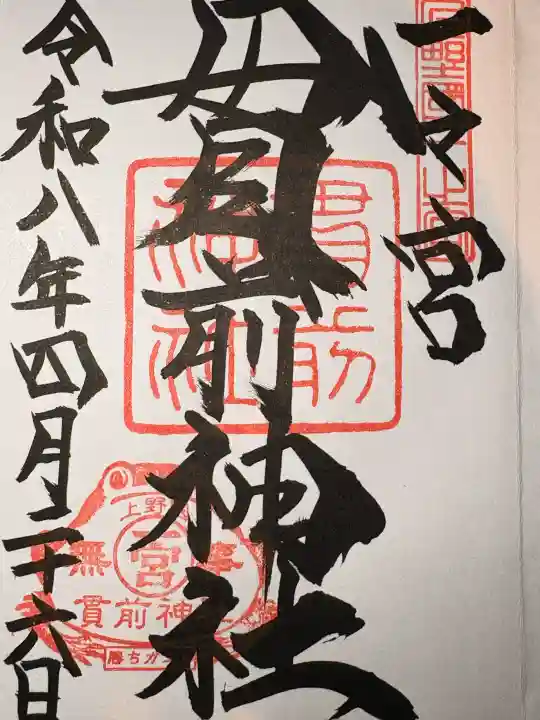 一之宮
貫前神社
令和八年四月二十六日
貫前
神社
上野
無事
一宮
貫前神社
勝ちガエル